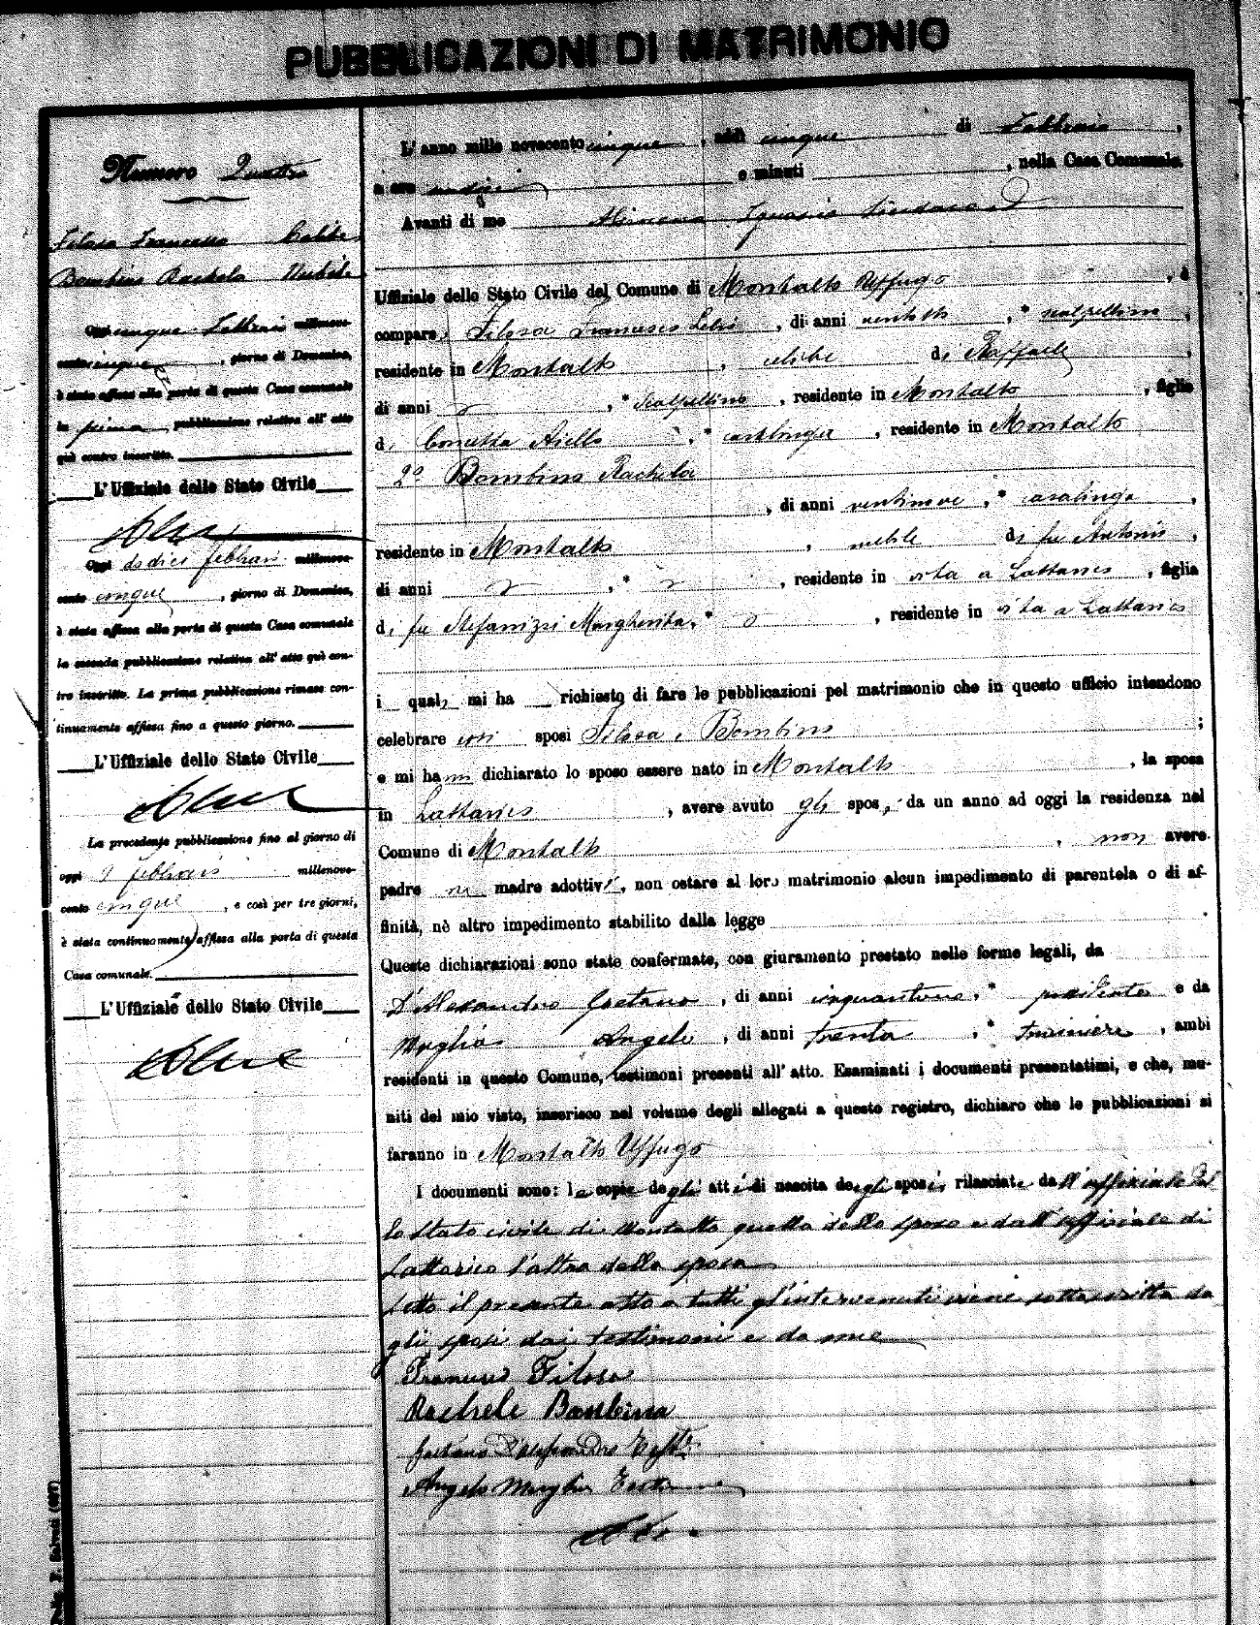 PUBBLICAZIONI DI MATRIMONIO
Numero Quattro
Filosa Francesco Celibe
Bombino Rachela Nubile
Oggi cinque Febbraio millenove-
cento cinque, giorno di Domenica,
è stata affissa alla porta di questa Casa comunale
la prima pubblicazione relativa all' atto
quì contro inscritto.
L'Uffiziale dello Stato Civile
Oggi dodici febbraio millenove-
cento cinque, giorno di Domenica,
è stata affissa alla porta di questa Casa comunale
la seconda pubblicazione relativa all' atto quì con-
tro inscritto. La prima pubblicazione rimase con-
tinuamente affissa fino a questo giorno.
L'Uffiziale dello Stato Civile
La precedente pubblicazione fino al giorno di
oggi febbraio millenove-
cento cinque, e così per tre giorni,
è stata continuamente affissa alla porta di questa
Casa comunale.
L'Uffiziale dello Stato Civile
L'anno mille novecento cinque, addì cinque di Febbraio,
a ore undici e minuti, nella Casa Comunale.
Avanti di me Alimena Ignazio Sindaco
Uffiziale dello Stato Civile del Comune di Montalto Uffugo, è
compars Filosa Francesco, di anni ventotto, scalpellino,
residente in Montalto, celibe di Raffaele,
di anni, scalpellino, residente in Montalto, figlio
di Concetta Aiello, casalinga, residente in Montalto
2° Bombino Rachela
, di anni ventinove, casalinga,
residente in Montalto, nubile di fu Antonio,
di anni, residente in vita a Lattarico, figlia
di fu Stefanizzi Margherita, residente in vita a Lattarico
i quali mi ha richiesto di fare le pubblicazioni pel matrimonio che in questo ufficio intendono
celebrare essi sposi Filosa e Bombino;
e mi hanno dichiarato lo sposo essere nato in Montalto, la sposa
in Lattarico, avere avuto gli sposi da un anno ad oggi la residenza nel
Comune di Montalto, non avere
padre nè madre adottivi, non ostare al loro matrimonio alcun impedimento di parentela o di af-
finità, nè altro impedimento stabilito dalla legge.
Queste dichiarazioni sono state confermate, con giuramento prestato nelle forme legali, da
D'Alessandro Gaetano, di anni, e da
Maglia Angelo, di anni trenta, ambi
residenti in questo Comune, testimoni presenti all' atto. Esaminati i documenti presentatimi, e che, mu-
niti del mio visto, inserisco nel volume degli allegati a questo registro, dichiaro che le pubblicazioni si
faranno in Montalto Uffugo
I documenti sono: le copie degli atti di nascita degli sposi, rilasciate dall'uffiziale del
lo stato civile di Montalto quella dello sposo e dall'uffiziale di
Lattarico l'altra della sposa
Letto il presente atto a tutti gl'intervenuti viene sottoscritto da
gli sposi dai testimoni e da me
Francesco Filosa
Rachele Bombina
Gaetano D'Alessandro
Angelo Maglia